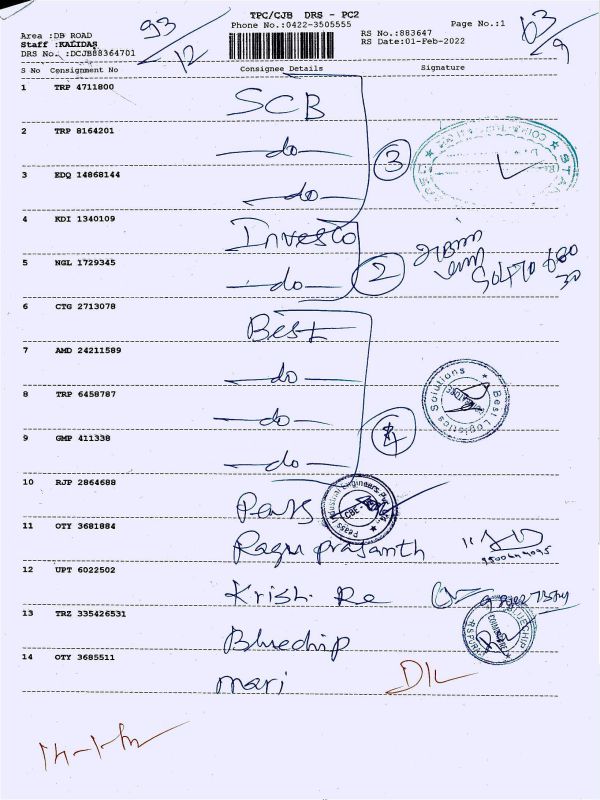 TPC/CJB DRS - PC2
93/12
63/9
Phone No.:0422-3505555
Page No.:1
Area :DB ROAD
RS No.:883647
Staff :KALIDAS
RS Date:01-Feb-2022
DRS No. :DCJB88364701
S No Consignment No Consignee Details Signature
1 TRP 4711800 SCB
2 TRP 8164201 -do-
3 EDQ 14868144 -do-
3
4 KDI 1340109 Investo
5 NGL 1729345 -do-
2
6 CTG 2713078 Best
7 AMD 24211589 -do-
8 TRP 6458787 -do-
9 GMP 411338 -do-
4
Best Logistics Solutions
10 RJP 2864688
Peass Industrial Engineers
CBE
11 OTY 3681884 Ragu prasanth
12 UPT 6022502 Krish. Re
13 TRZ 335426531 Bluechip
BLUECHIP
14 OTY 3685511 mari
DIL